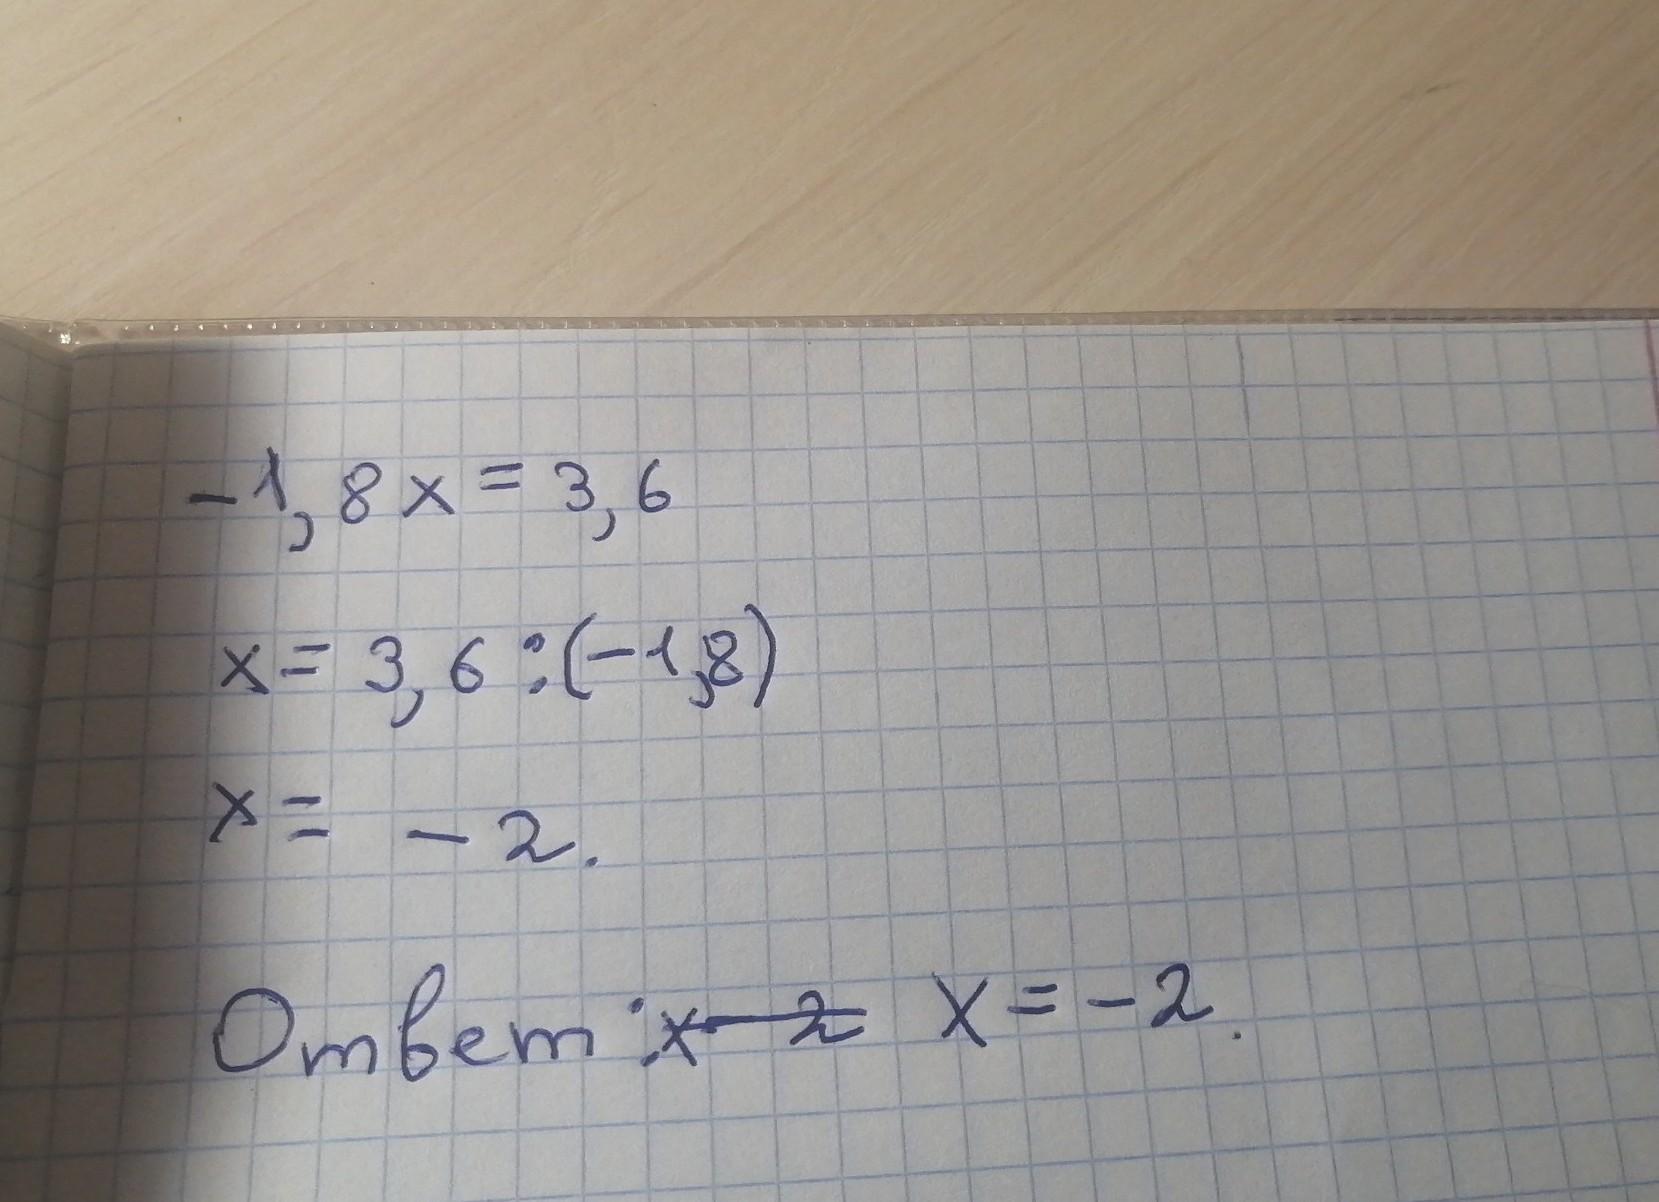 -1,8x=3,6
x=3,6:(-1,8)
x=-2.
Ответ: x-2 X=-2.